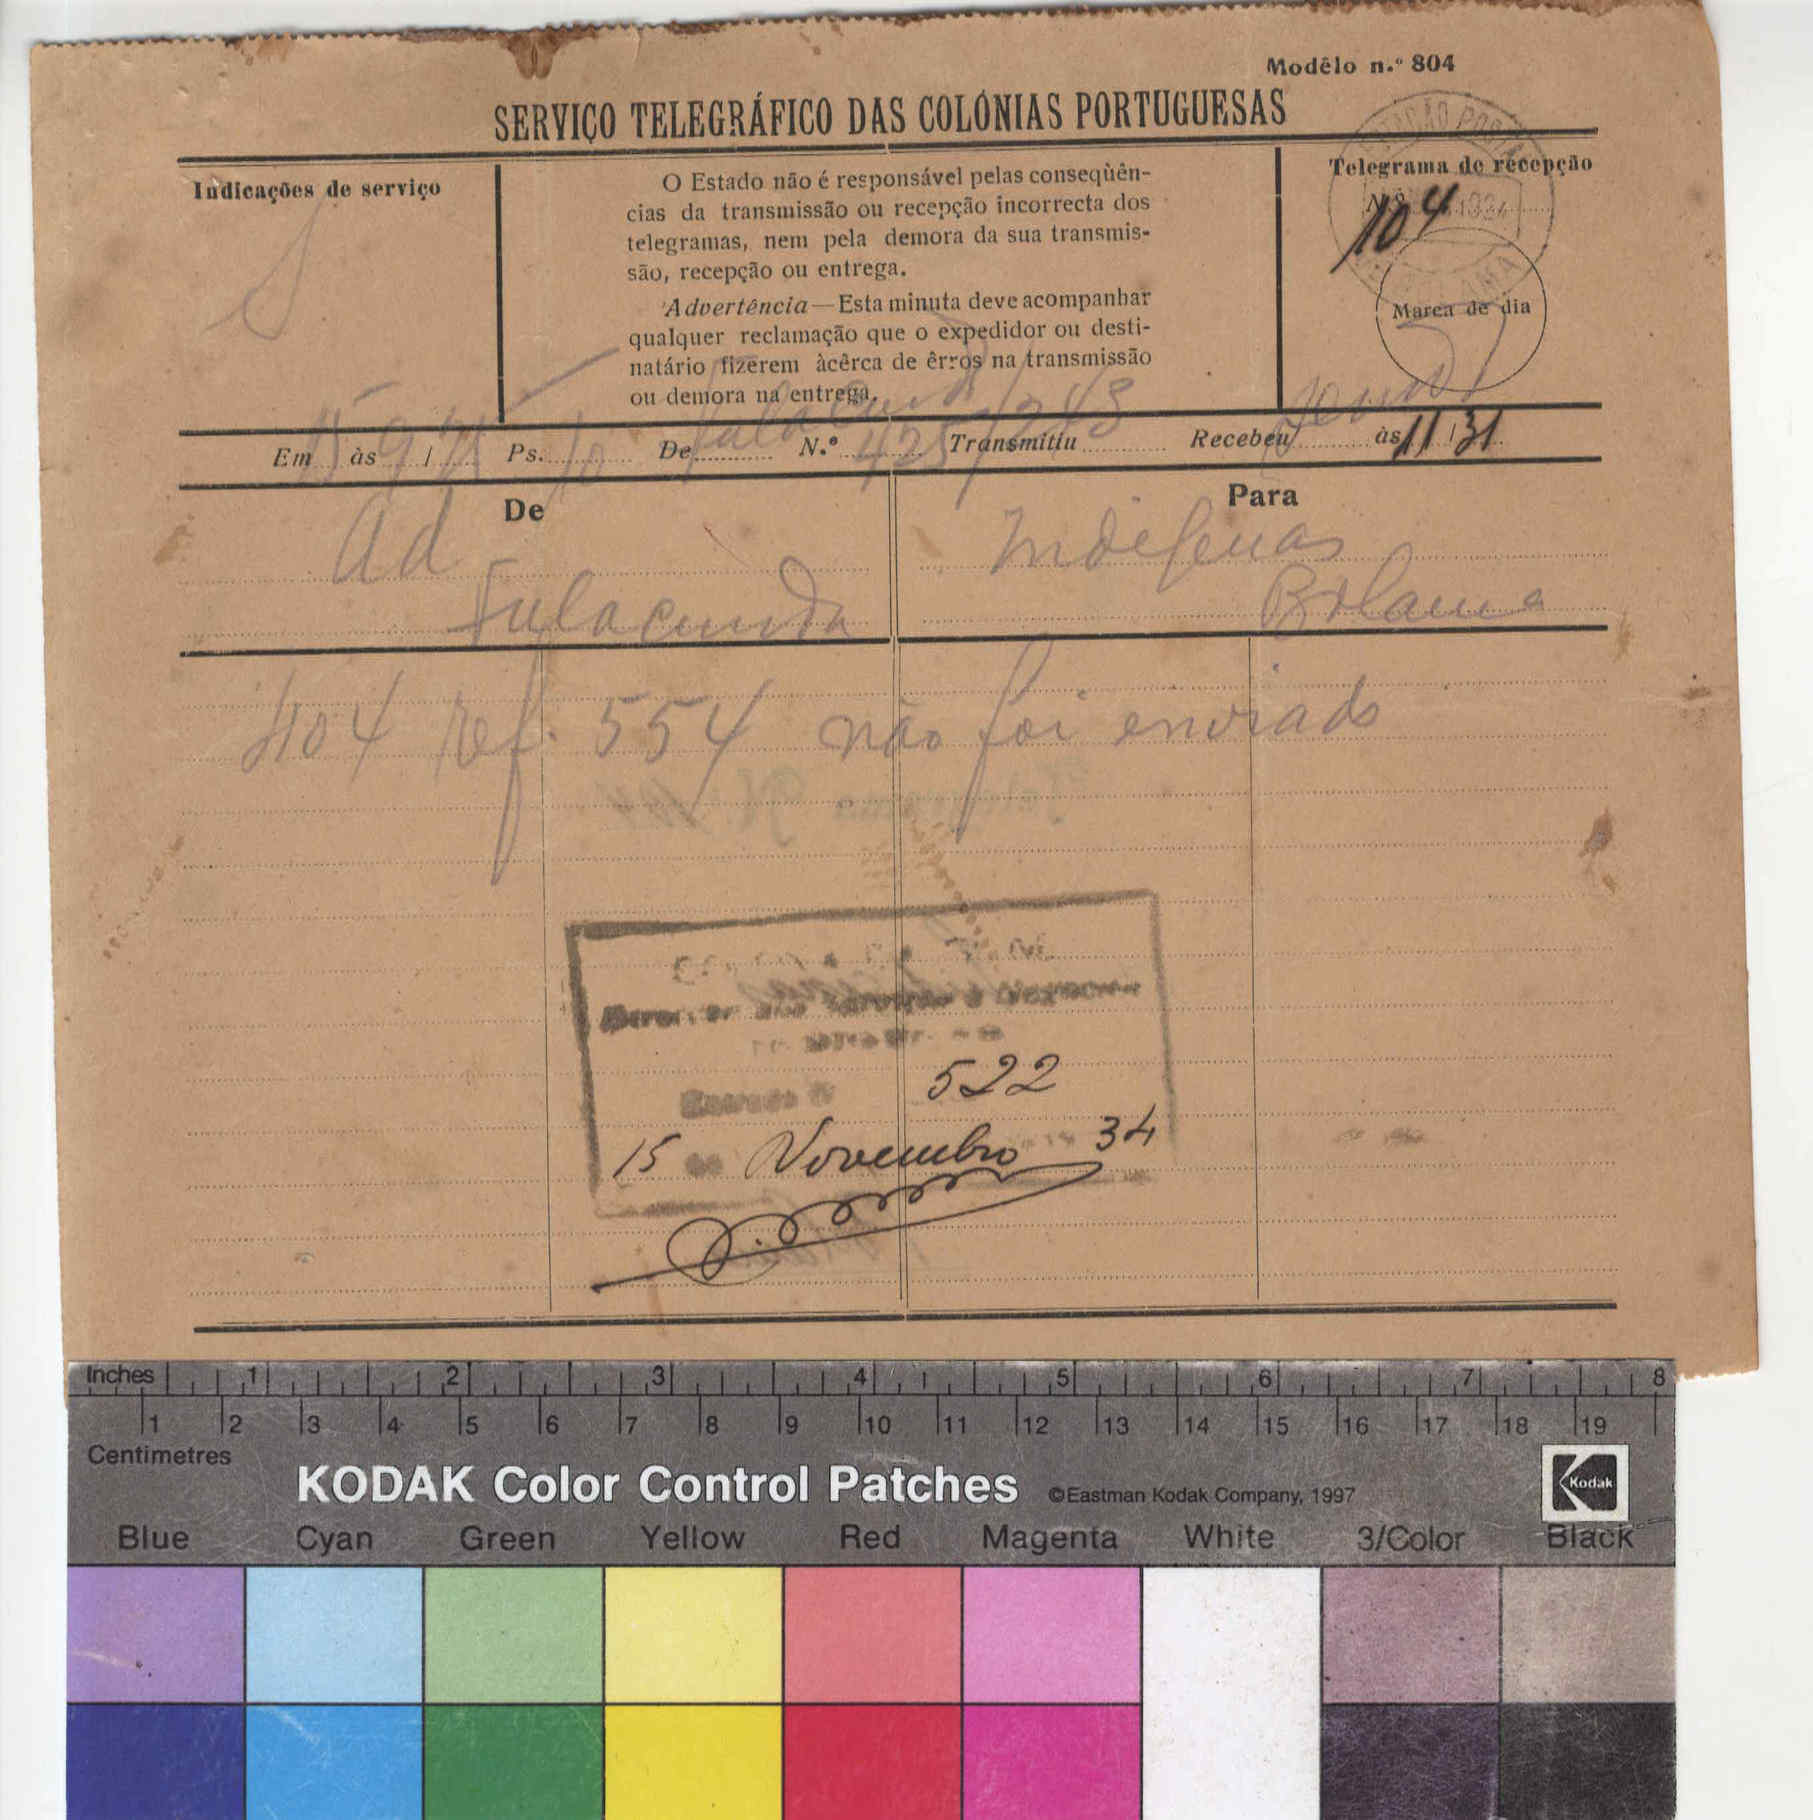 Modêlo n.º 804
SERVIÇO TELEGRÁFICO DAS COLÓNIAS PORTUGUESAS
Indicações de serviço
O Estado não é responsável pelas conseqüên-
cias da transmissão ou recepção incorrecta dos
telegramas, nem pela demora da sua transmis-
são, recepção ou entrega.
Advertência—Esta minuta deve acompanhar
qualquer reclamação que o expedidor ou desti-
natário fizerem àcêrca de êrros na transmissão
ou demora na entrega.
Telegrama de recepção
N.º 104
Marca de dia
Em 15 às 9/75 Ps. De Fulacunda N.º 425/243 Transmitiu Recebeu às 11/31
De
Para
Ad
Fulacunda
Indigenas
Bolama
404 ref. 554 não foi enviado
522
15 de Novembro 34
Inches 1 2 3 4 5 6 7 8
1 2 3 4 5 6 7 8 9 10 11 12 13 14 15 16 17 18 19
Centimetres
KODAK Color Control Patches ©Eastman Kodak Company, 1997 Kodak
Blue Cyan Green Yellow Red Magenta White 3/Color Black